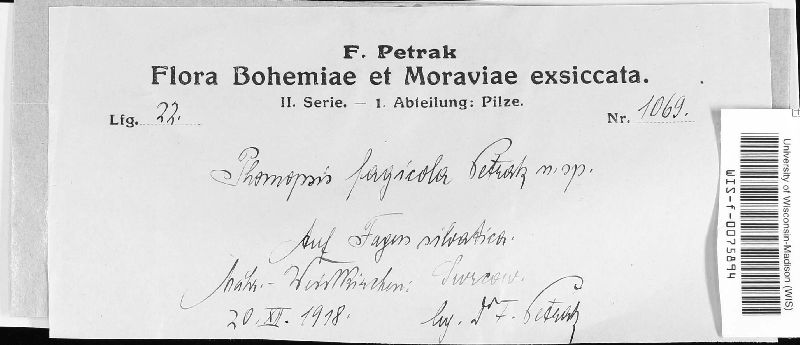 F. Petrak
Flora Bohemiae et Moraviae exsiccata.
II. Serie. — 1. Abteilung: Pilze.
Lfg. 22.
Nr. 1069.
Phomopsis fagicola Petrak n. sp.
Auf Fagus silvatica.
Mähr.-Weisskirchen:
20. XII. 1918.
lg. Dr F. Petrak
University of Wisconsin-Madison (WIS)
WIS-f-0075894